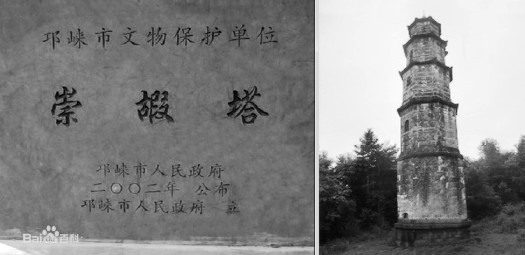 邛崃市文物保护单位
崇嘏塔
邛崃市人民政府
二〇〇二年 公布
邛崃市人民政府 立
Bai百科